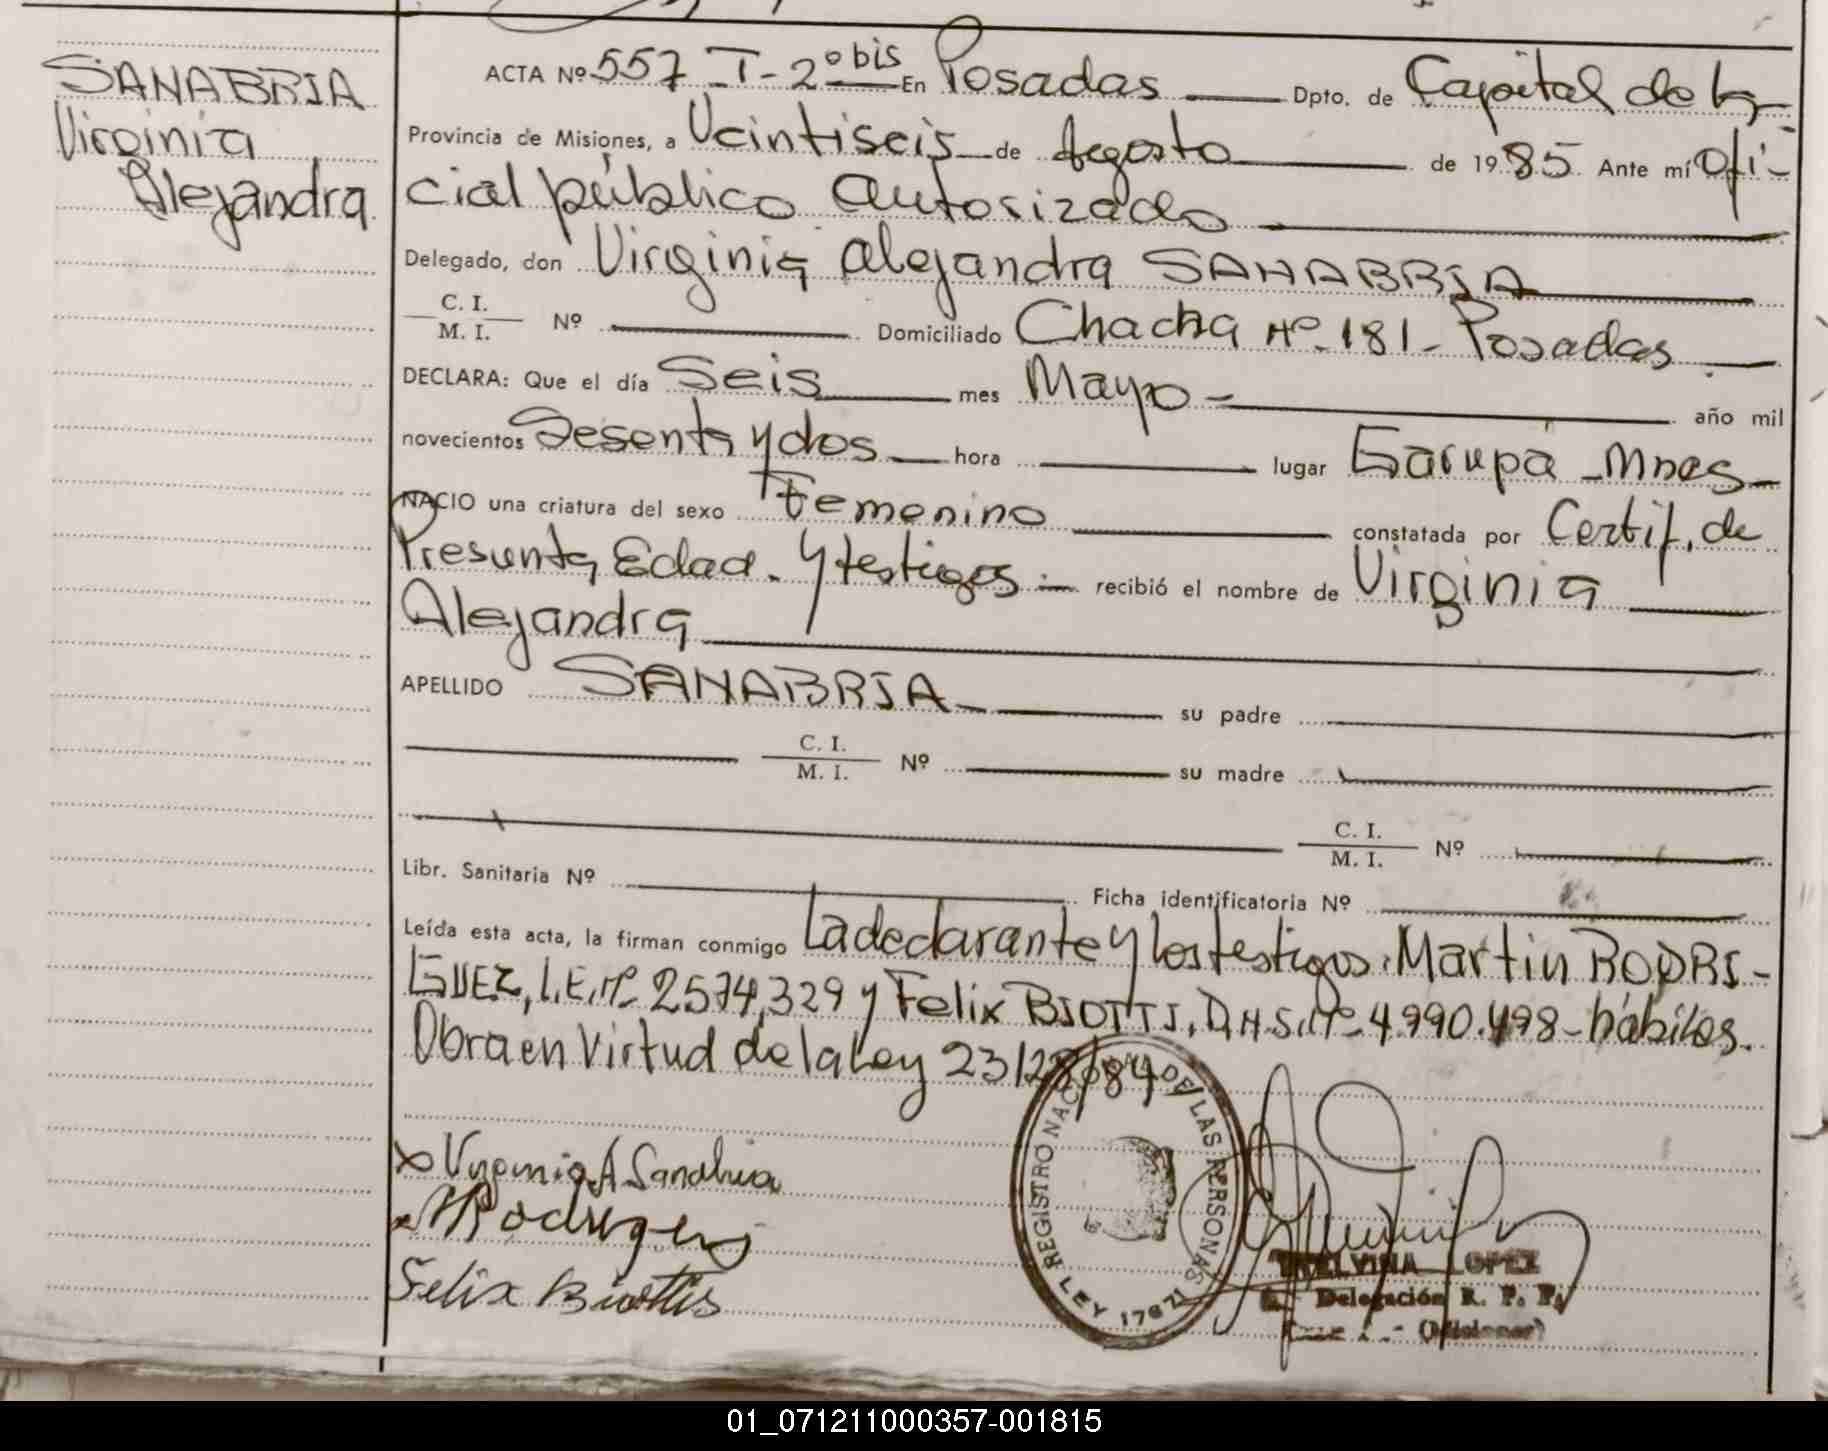 SANABRIA
Virginia
Alejandra
ACTA Nº 557 T-2º bis En Posadas Dpto. de Capital de la
Provincia de Misiones, a Veintiseis de Agosto de 1985 Ante mí Ofi-
cial público autorizado
Delegado, don Virginia Alejandra SANABRIA
C. I.
M. I. Nº Domiciliado Chacra Nº 181- Posadas
DECLARA: Que el día Seis mes Mayo - año mil
novecientos Sesenta y dos hora lugar Garupa - Mnes-
NACIO una criatura del sexo Femenino constatada por Certif. de
Presunta Edad. y testigos - recibió el nombre de Virginia
Alejandra
APELLIDO SANABRIA su padre
C. I.
M. I. Nº su madre
C. I.
M. I. Nº
Libr. Sanitaria Nº Ficha identificatoria Nº
Leída esta acta, la firman conmigo La declarante y los testigos: Martin RODRI-
GUEZ, L.E.Nº 2574,329 y Felix BIOTTI, D.N.I.Nº 4.990.498- hábiles.
Obra en Virtud de la Ley 23128/84
Virginia A Sanabria
Rodriguez
Felix Biottis
REGISTRO NAC DE LAS PERSONAS
LEY 17671
LOPEZ
Delegación R. P. P.
(Misiones)
01_071211000357-001815